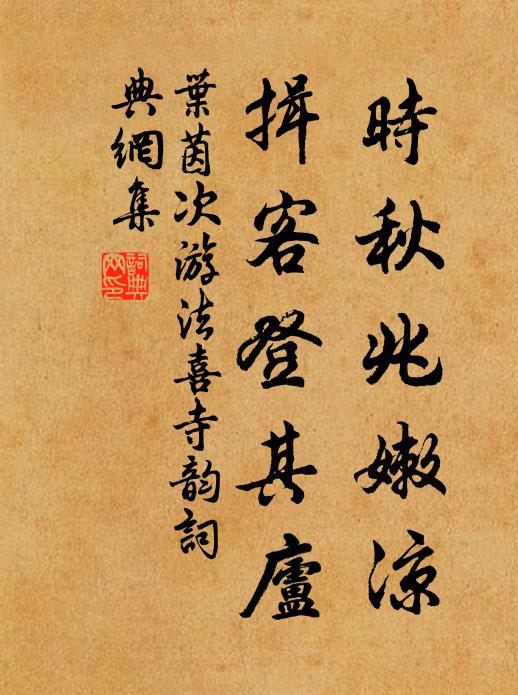 時秋兆嫩涼
揖客登其廬
葉茵次游法喜寺韵詞
典網集
詞典
网印